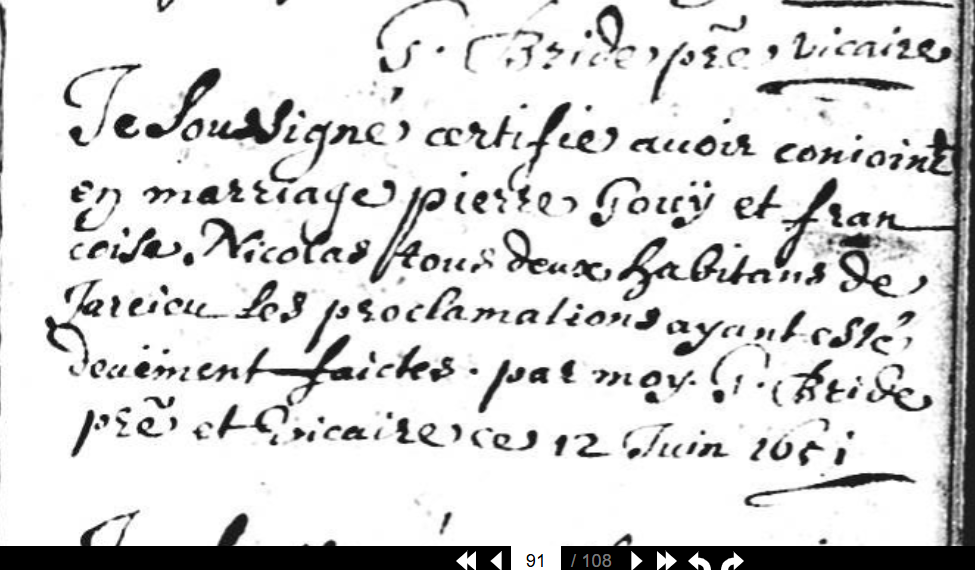 G. Bride prẽ vicaire
Je Soussigné certifie auoir conioint
en marriage pierre Gouÿ et fran
coise Nicolas tous deux habitans de
Jarcieu les proclamations ayant esté
deuëment faictes. par moy. G. Bride
prẽ et vicaire ce 12 Juin 1651
91 / 108